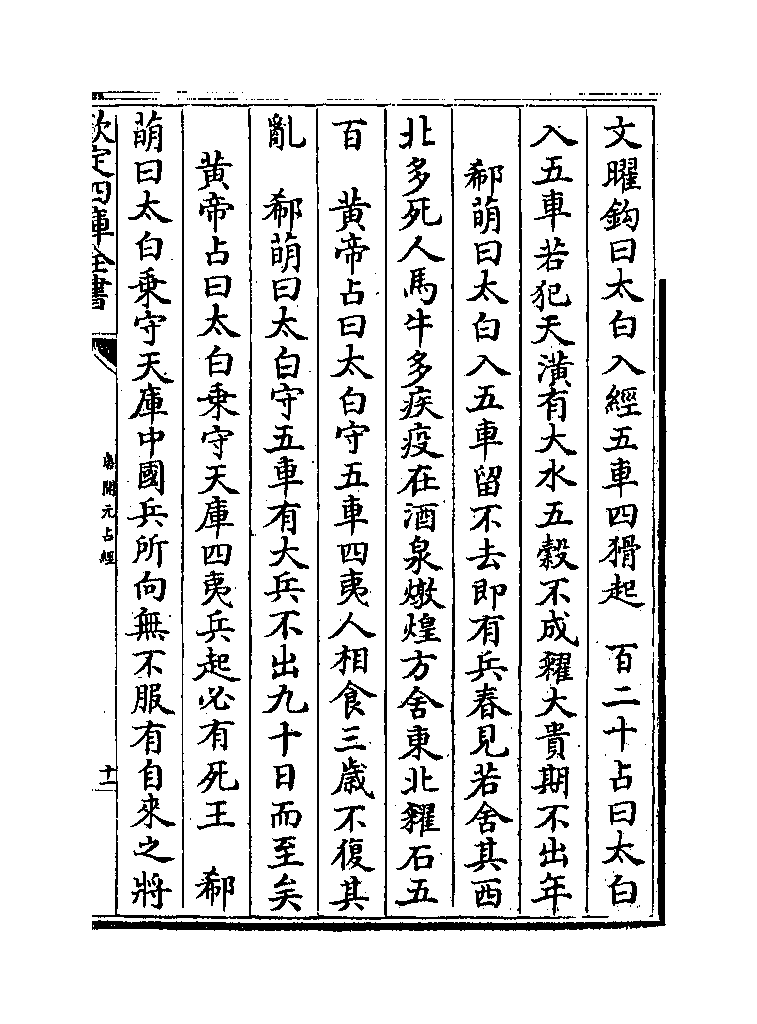 文曜鈎曰太白入經五車四猾起　百二十占曰太白
入五車若犯天潢有大水五穀不成糴大貴期不出年
郗萌曰太白入五車留不去即有兵春見若舍其西
北多死人馬牛多疾疫在酒泉燉煌方舍東北糴石五
百　黄帝占曰太白守五車四夷人相食三歲不復其
亂　郗萌曰太白守五車有大兵不出九十日而至矣
黄帝占曰太白乗守天庫四夷兵起必有死王　郗
萌曰太白乗守天庫中國兵所向無不服有自來之將
欽定四庫全書
唐開元占經
十一